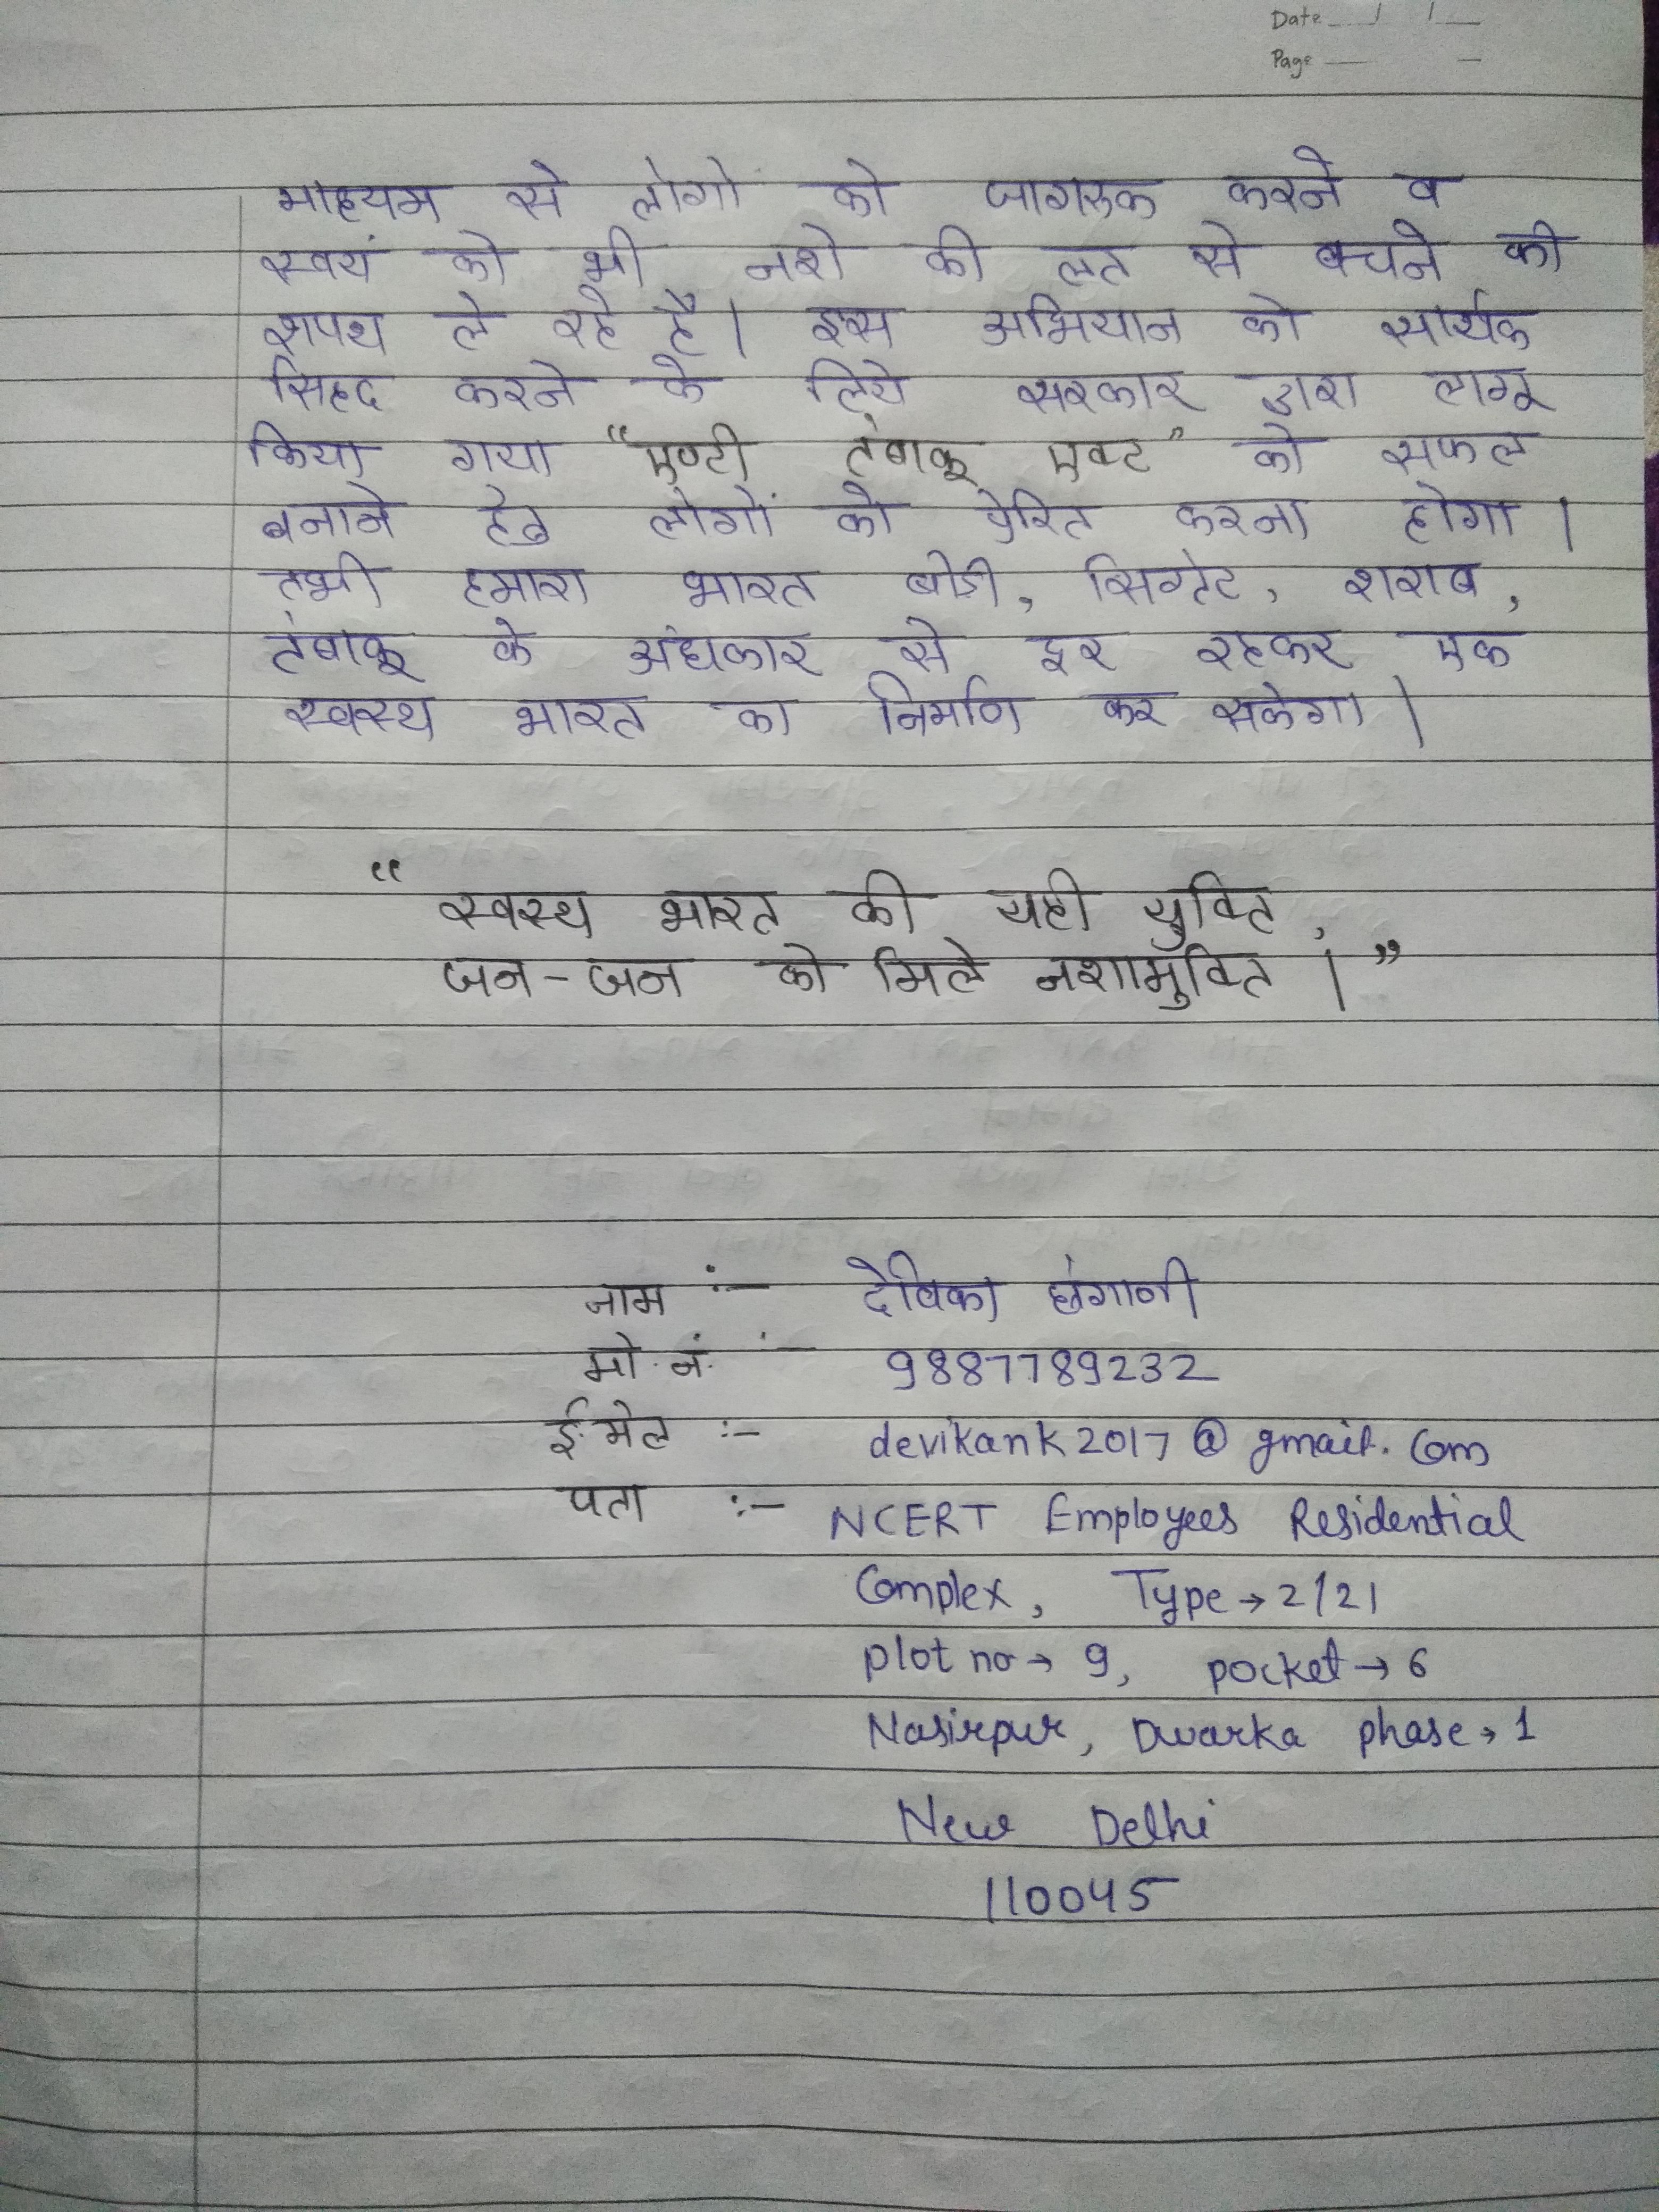 Date __/__/__
Page ____
माध्यम से लोगों को जागरुक करने व
स्वयं को भी नशे की लत से बचने की
शपथ ले रहे है। इस अभियान को सार्थक
सिद्ध करने के लिये सरकार द्वारा लागू
किया गया "एण्टी तंबाकू एक्ट" को सफल
बनाने हेतु लोगों को प्रेरित करना होगा।
तभी हमारा भारत बीडी, सिगरेट, शराब,
तंबाकू के अंधकार से दूर रहकर एक
स्वस्थ भारत का निर्माण कर सकेगा।
"स्वस्थ भारत की यही युक्ति,
जन-जन को मिले नशामुक्ति।"
नाम :- देविका छंगाणी
मो. नं. :- 9887789232
ई-मेल :- devikank2017@gmail.com
पता :- NCERT Employees Residential
Complex, Type → 2/21
plot no → 9, pocket → 6
Nasirpur, Dwarka phase → 1
New Delhi
110045